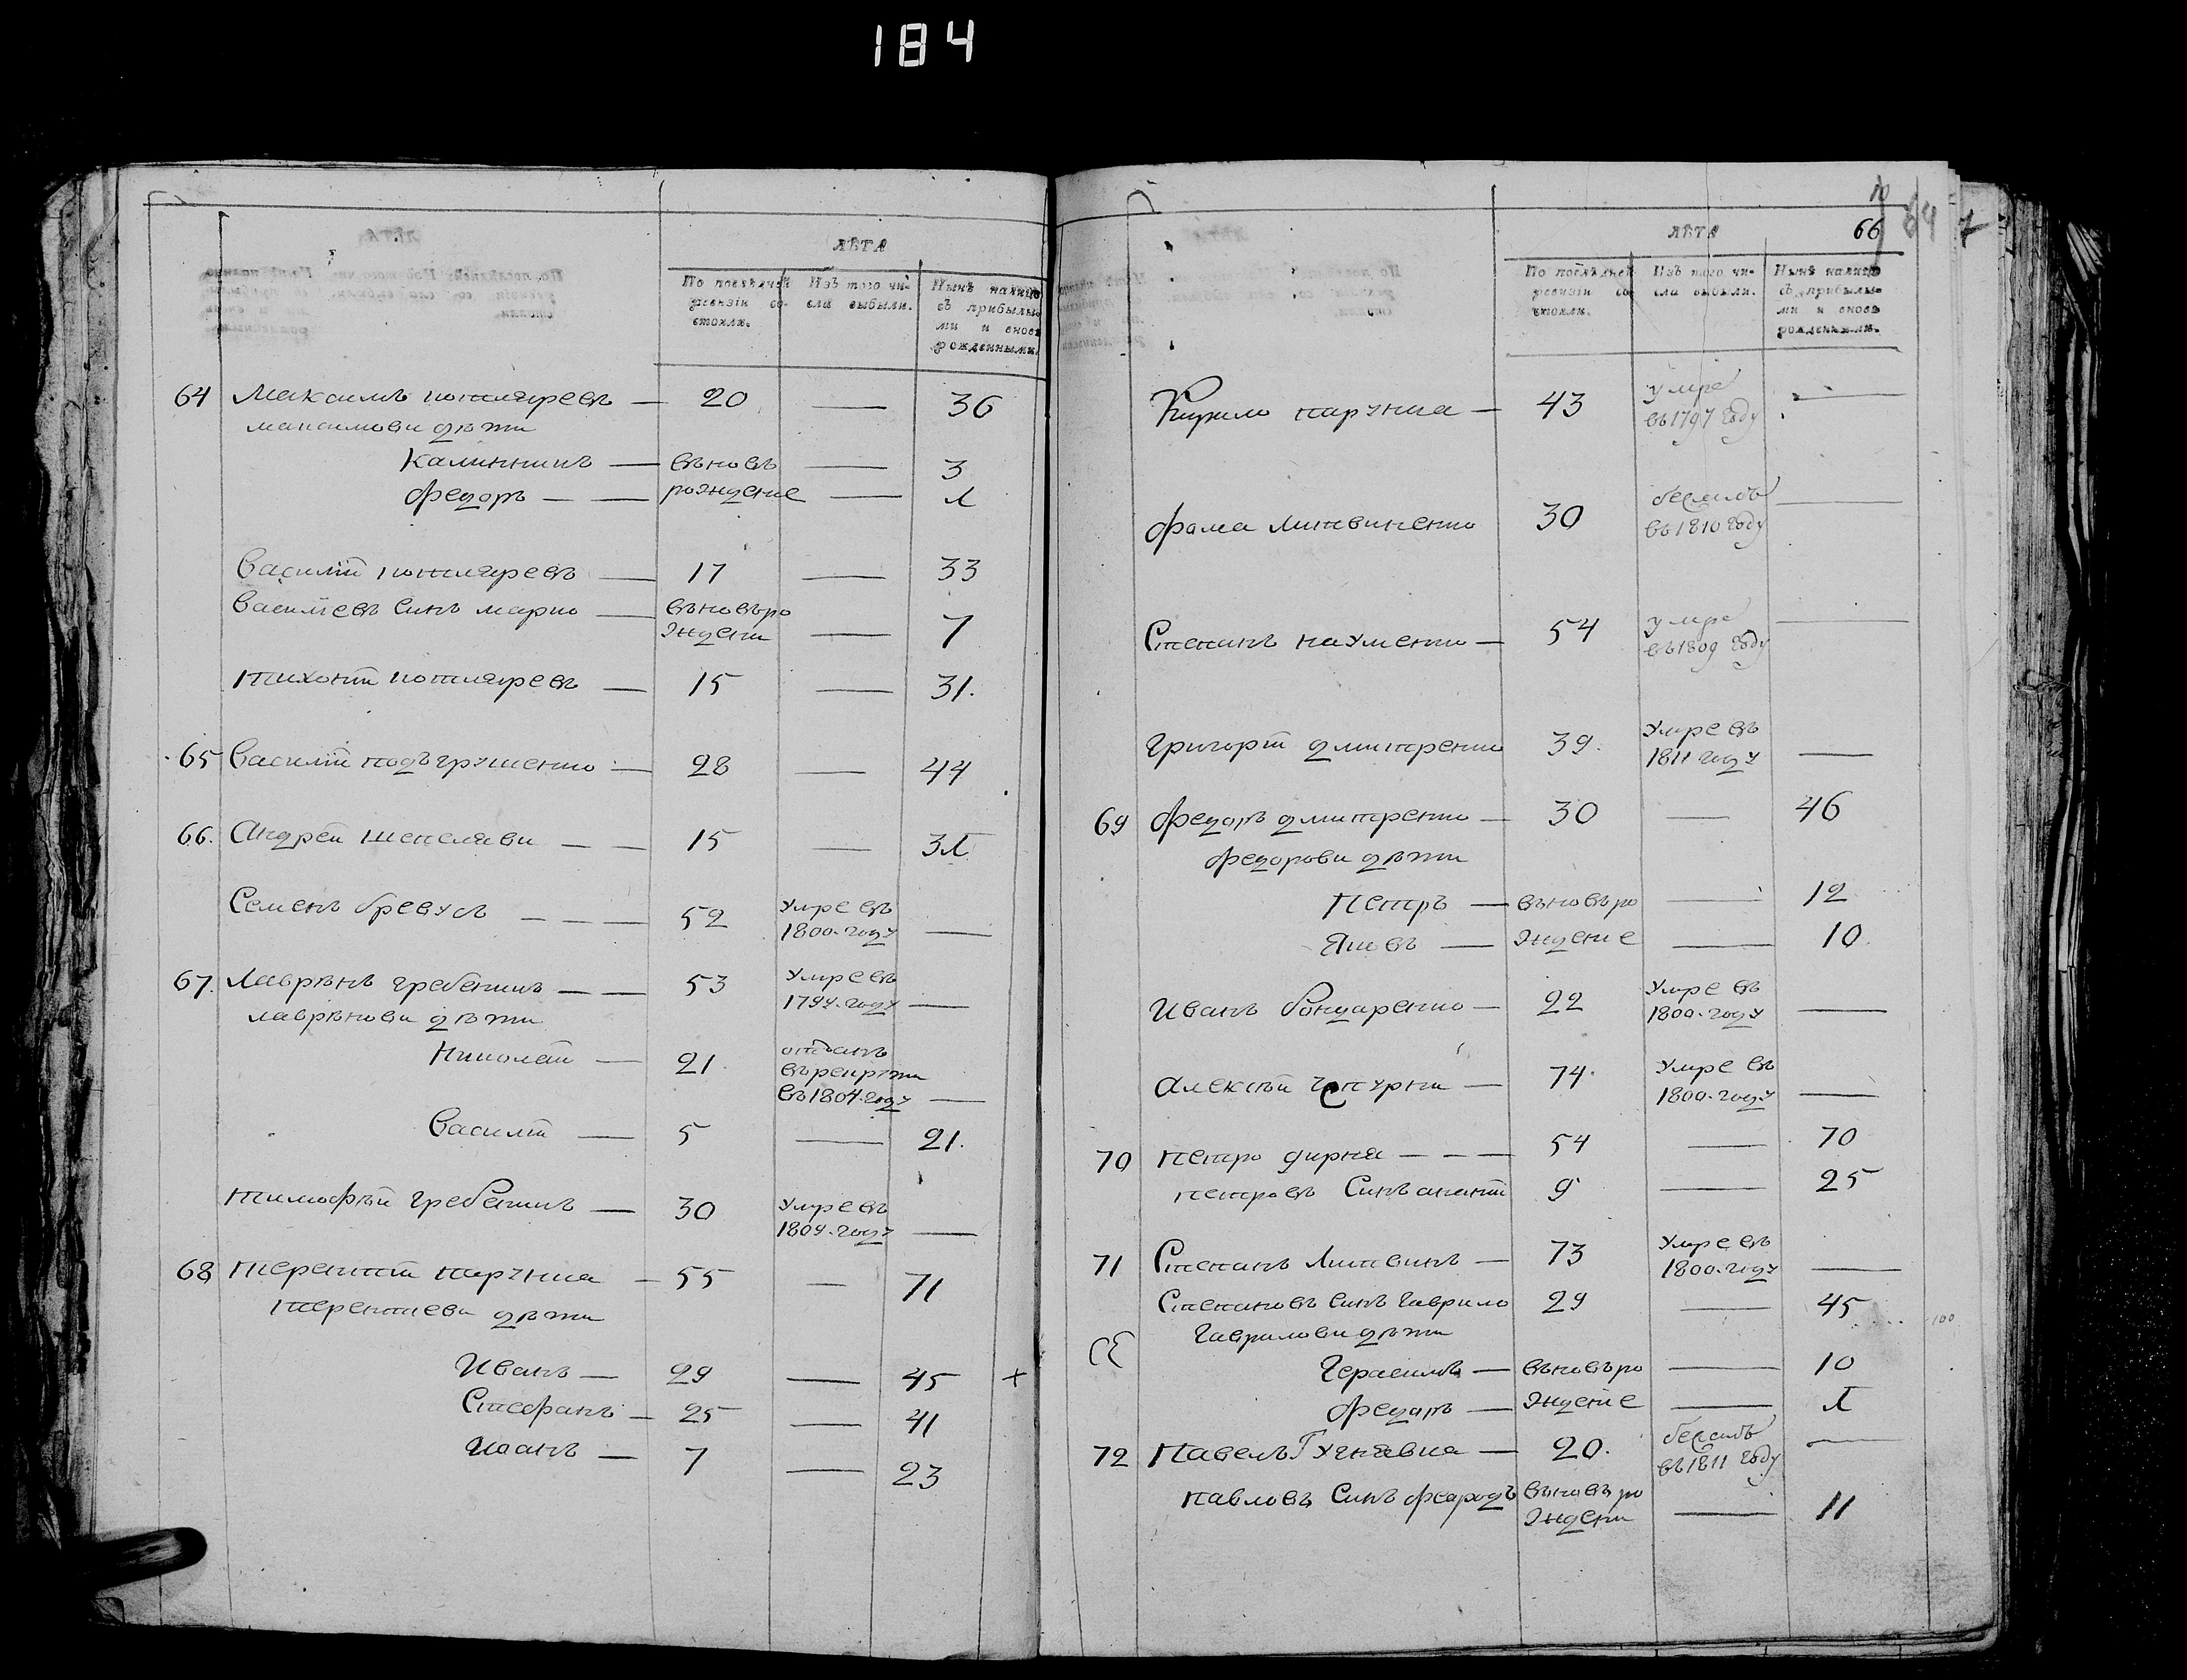 184
ЛѢТА
По послѣдней ревизіи состояли.
Изъ того числа выбыли.
Нынѣ налицо съ прибылыми и вновь рожденными.
64 Максимъ котляревъ — 20 — 36
максимови дѣти
калинникъ — въновь — 3
федоръ — — рожденіе — 1
Василій котляревъ — 17 — 33
Василіевъ синъ марко — въновъро
жденн — 7
тихонъ котляревъ — 15 — 31.
65 Василій подъгрушенко — 28 — 44
66. Андрей шепеляви — — 15 — 31
Семенъ бревусъ — — — 52 Умре въ
1800. году —
67. Лаврѣнъ гребеникъ — — 53 Умре въ
1797. году —
лаврѣнови дѣти
Николай — 21. отданъ
въ рекрути
въ 1804. году —
Василій — 5 — 21.
тимофѣй гребеникъ — 30 Умре въ
1804. году —
68 терентій — 55 — 71
терентиеви дѣти
Иванъ — 29 — 45 +
Стефанъ — 25 — 41
Иванъ — 7 — 23
10
66
ЛѢТА
По послѣдней ревизіи состояли.
Изъ того числа выбыли.
Нынѣ налицо съ прибылыми и вновь рожденными.
Кирило — 43 умре
въ 1797 году —
фома литвиненко 30 бежалъ
въ 1810 году —
Степанъ науменко — 54 умре
въ 1809 году —
григорій дмитренко 39. Умре въ
1811 году —
69 федоръ дмитренко — 30 — 46
федорови дѣти
Петръ — въновъро — 12
Яковъ — жденіе — 10.
Иванъ бондаренко — 22 Умре въ
1800. году —
Алексѣй чепурни — 74. Умре въ
1800. году —
70 петро дирка — — — 54 — 70
петровъ Синъ ананій 9 — 25
71 Степанъ литвинъ — 73 Умре въ
1800. году —
Степановъ синъ гаврило 29 — 45
гаврилови дѣти
герасимъ — въновъро — 10
федоръ — жденіе — 1
72 Павелъ — 20. бежалъ
въ 1811 году —
павловъ Синъ въновъ ро
жденн — 11